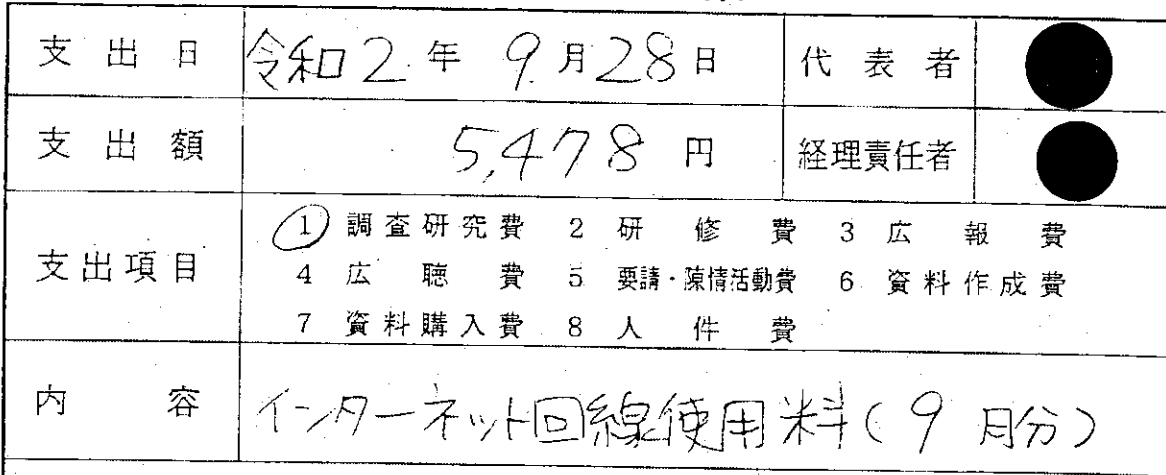 支出日 令和2年9月28日 代表者
支出額 5,478円 経理責任者
支出項目 1 調査研究費 2 研修費 3 広報費
4 広聴費 5 要請・陳情活動費 6 資料作成費
7 資料購入費 8 人件費
内容 インターネット回線使用料(9月分)